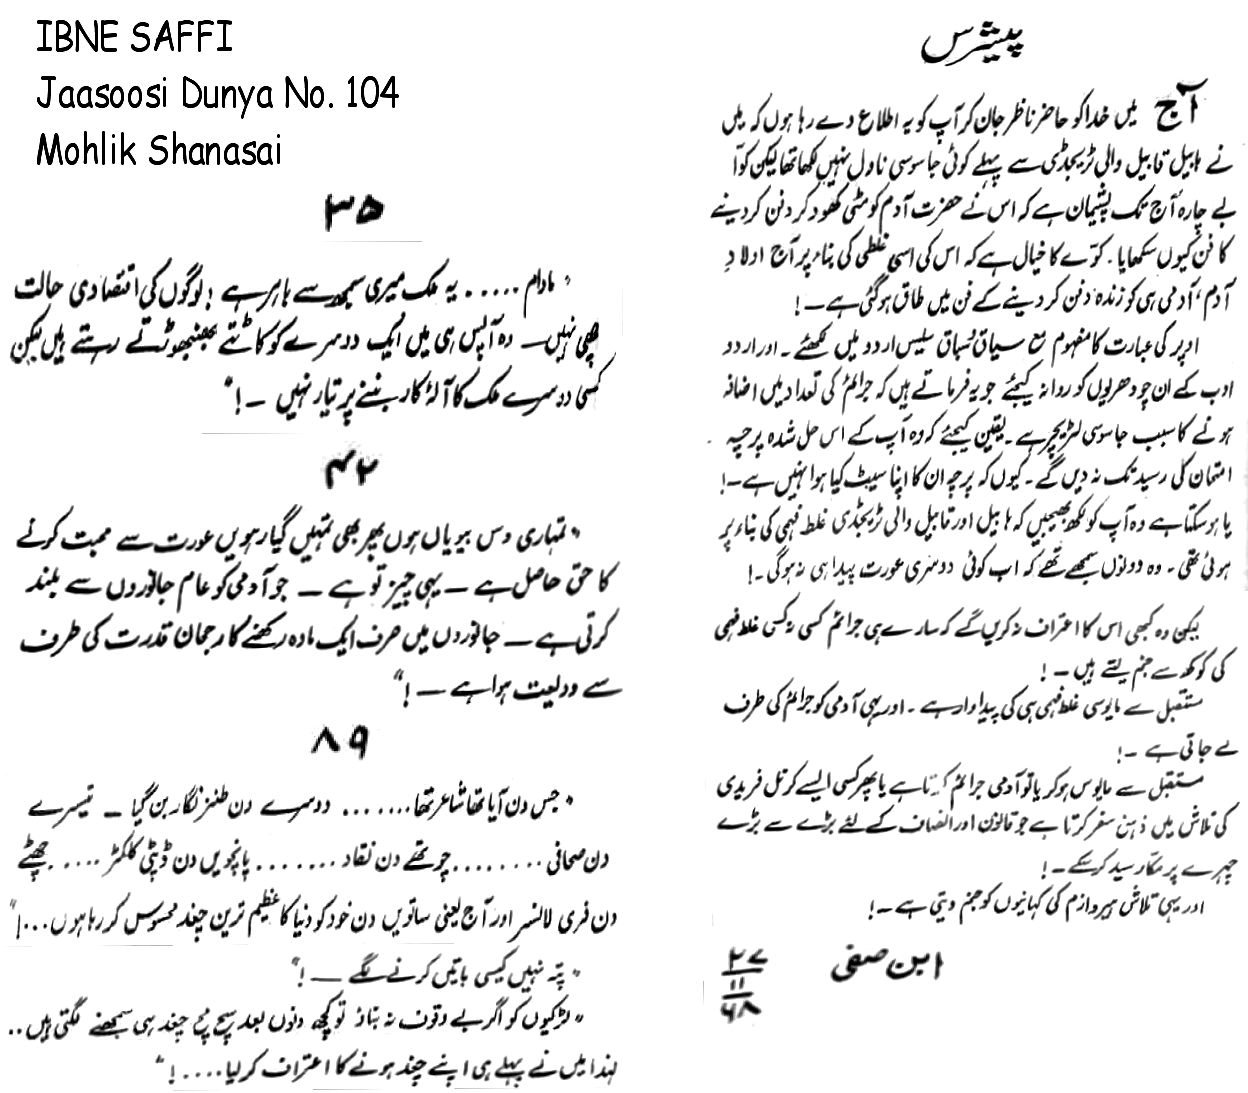 IBNE SAFFI
Jaasoosi Dunya No. 104
Mohlik Shanasai
پیشرس
آج میں خدا کو حاضر ناظر جان کر آپ کو یہ اطلاع دے رہا ہوں کہ میں
نے ہابیل قابیل والی ٹریجڈی سے پہلے کوئی جاسوسی ناول نہیں لکھا تھا لیکن کوّا
بے چارہ آج تک پشیمان ہے کہ اس نے حضرت آدم کو مٹی کھود کر دفن کر دینے
کا فن کیوں سکھایا۔ کوّے کا خیال ہے کہ اس کی اسی غلطی کی بناء پر آج اولادِ
آدم، آدمی ہی کو زندہ دفن کر دینے کے فن میں طاق ہو گئی ہے۔!
اوپر کی عبارت کا مفہوم مع سیاق سباق سلیس اردو میں لکھئے۔ اور اردو
ادب کے ان چودھریوں کو روانہ کیجئے جو یہ فرماتے ہیں کہ جرائم کی تعداد میں اضافہ
ہونے کا سبب جاسوسی لٹریچر ہے۔ یقین کیجئے کہ وہ آپ کے اس حل شدہ پرچہ
امتحان کی رسید تک نہ دیں گے۔ کیوں کہ پرچہ ان کا اپنا سیٹ کیا ہوا نہیں ہے۔!
یا ہو سکتا ہے وہ آپ کو لکھ بھیجیں کہ ہابیل اور قابیل والی ٹریجڈی غلط فہمی کی بناء پر
ہوئی تھی۔ وہ دونوں سمجھے تھے کہ اب کوئی دوسری عورت پیدا ہی نہ ہوگی۔!
لیکن وہ کبھی اس کا اعتراف نہ کریں گے کہ سارے ہی جرائم کسی نہ کسی غلط فہمی
کی کوکھ سے جنم لیتے ہیں۔!
مستقبل سے مایوسی غلط فہمی ہی کی پیداوار ہے۔ اور یہی آدمی کو جرائم کی طرف
لے جاتی ہے۔!
مستقبل سے مایوس ہو کر یا تو آدمی جرائم کرتا ہے یا پھر کسی ایسے کرنل فریدی
کی تلاش میں ذہنی سفر کرتا ہے جو قانون اور انصاف کے لئے بڑے سے بڑے
چہرے پر مکّا رسید کر سکے۔!
اور یہی تلاش ہیروازم کی کہانیوں کو جنم دیتی ہے۔!
ابن صفی
۲۷
۱۱
۶۸
۳۵
"مادام ..... یہ ملک میری سمجھ سے باہر ہے! لوگوں کی اقتصادی حالت
اچھی نہیں۔ وہ آپس ہی میں ایک دوسرے کو کاٹتے بھنبھوڑتے رہتے ہیں لیکن
کسی دوسرے ملک کا آلۂ کار بننے پر تیار نہیں ۔!"
۴۲
"تمہاری دس بیویاں ہوں پھر بھی تمہیں گیارہویں عورت سے محبت کرنے
کا حق حاصل ہے ۔ یہی چیز تو ہے ۔ جو آدمی کو عام جانوروں سے بلند
کرتی ہے ۔ جانوروں میں صرف ایک مادہ رکھنے کا رجحان قدرت کی طرف
سے ودلیعت ہوا ہے ۔!"
۸۹
"جس دن آیا تھا شاعر تھا...... دوسرے دن طنز نگار بن گیا ۔ تیسرے
دن صحافی ........ چوتھے دن نقاد ....... پانچویں دن ڈپٹی کلکٹر ..... چھٹے
دن فری لانسر اور آج یعنی ساتویں دن خود کو دنیا کا عظیم ترین چغد محسوس کر رہا ہوں...!"
"پتہ نہیں کیسی باتیں کرنے لگے ۔!"
"لڑکیوں کو اگر بے وقوف نہ بناؤ تو کچھ دنوں بعد سچ مچ چغد ہی سمجھنے لگتی ہیں..
لہٰذا میں نے پہلے ہی اپنے چغد ہونے کا اعتراف کر لیا....!"